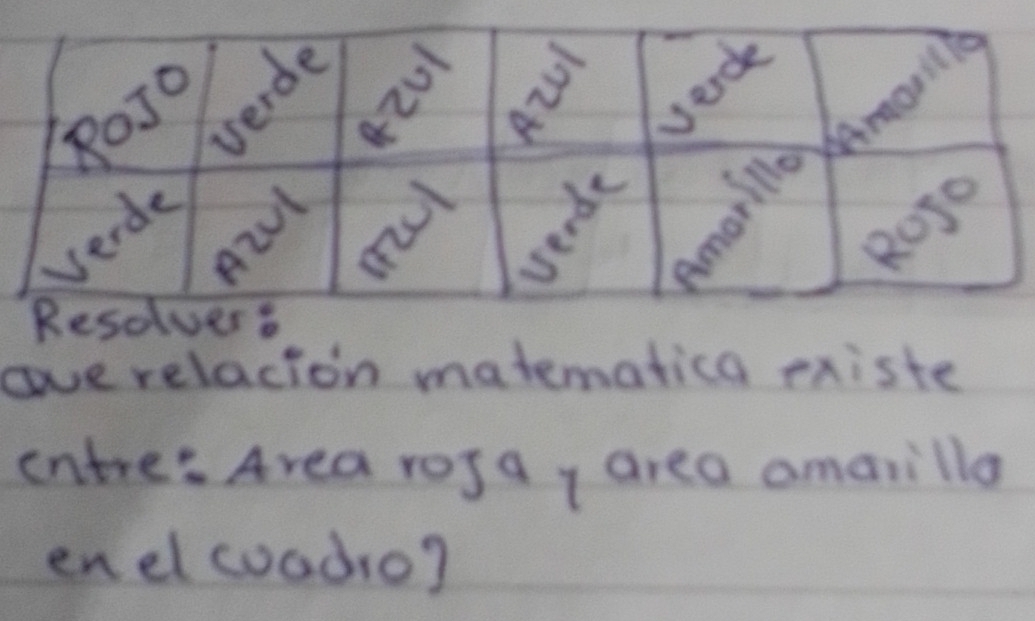 ROJO Verde AZUl AZUl Verde Amarillo
Verde AZUl AZUl Verde Amarillo ROJO
Resolver:
Que relación matematica existe
entre: Area roja y area amarilla
en el cuadro?